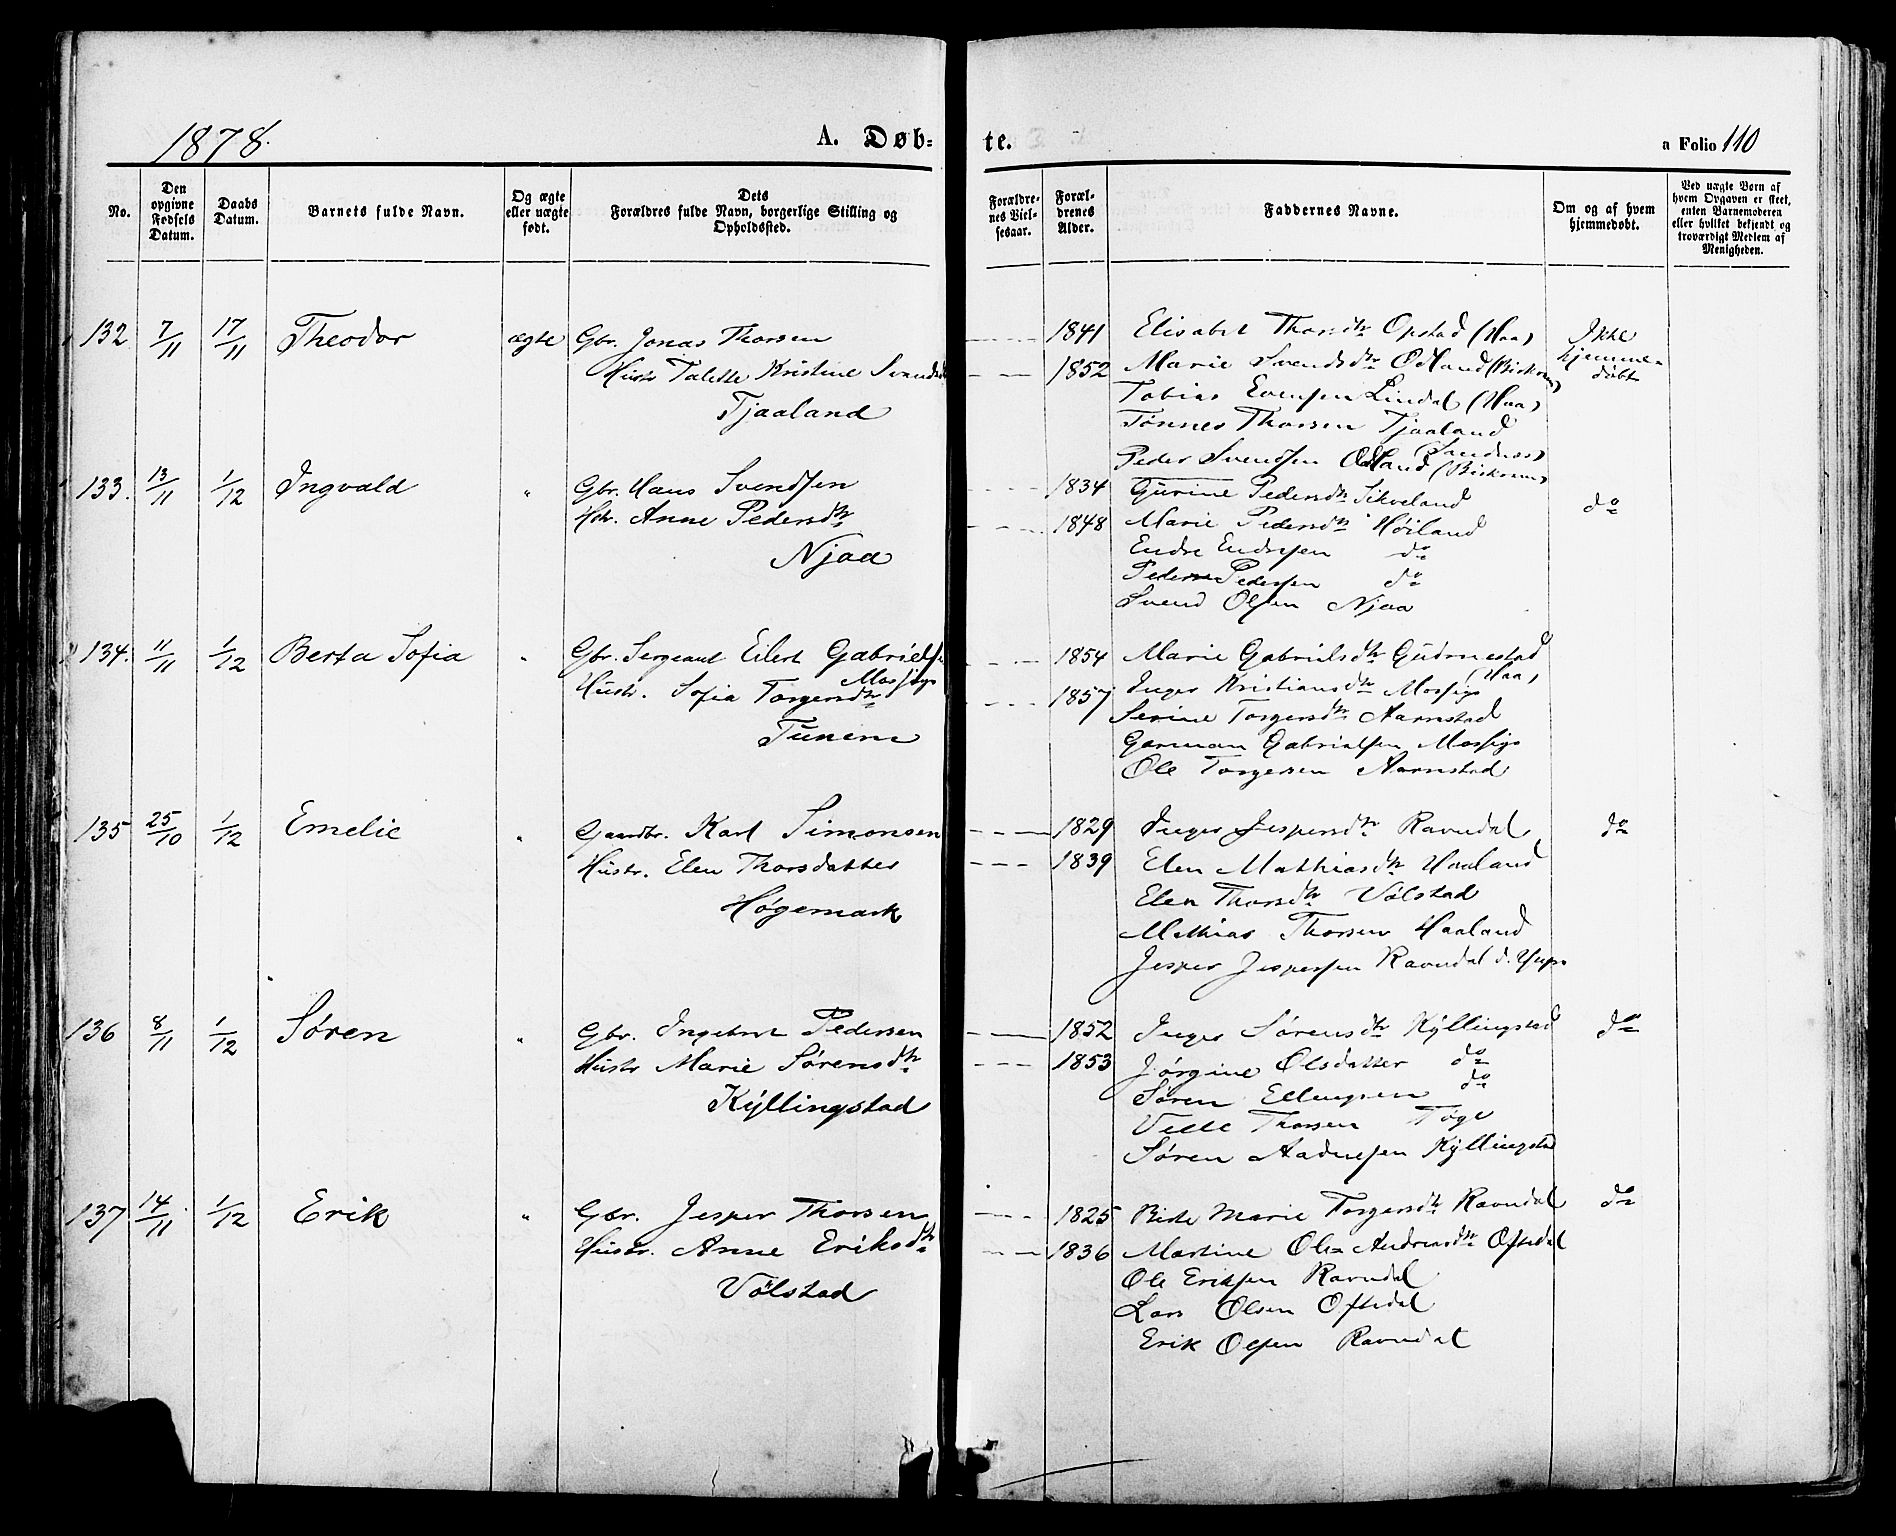 1878.
A. Døb-
te.
a Folio 110
No.
Den opgivne Fødsels Datum.
Daabs Datum.
Barnets fulde Navn.
Og ægte eller uægte født.
Dets Forældres fulde Navn, borgerlige Stilling og Opholdssted.
Forældre-nes Viel-sesaar.
Foræl-drenes Alder.
Faddernes Navne.
Om og af hvem hjemmedøbt.
Ved uægte Børn af hvem Opgaven er skeet, enten Barnemoderen eller hvilket bekjendt og troværdigt Medlem af Menigheden.
132 7/11 17/11 Theodor ægte Gbr. Jonas Thorsen
Hustr Talette Kristine Svendsd
Tjaaland
1841 Elisabet Thorsdtr Opstad (Haa) Ikke
1852 Marie Svendsdtr Ødland (Birkrem) hjemme-
Tobias Evensen Lindal (Haa) døbt
Tønnes Thorsen Tjaaland
(Sandnes)
Peder Svendsen Ødland (Birkrem)
133. 13/11 1/12 Ingvald " Gbr. Hans Svendsen
Hstr. Anne Pedersdtr
Njaa
1834 Gurine Pedersdtr Sikveland
1848 Marie Pedersdtr Høiland do
Endre Endresen do
Peder Pedersen do
Svend Olsen Njaa
134. 11/11 1/12 Berta Sofia " Gbr. Sergeant Eilert Gabrielse
Mossige
Hustr. Sofia Torgersdtr
Tunem
1854 Marie Gabrielsdtr Gudmestad
(Haa)
1857 Inger Kristiansdtr Mossige
Serine Torgersdtr Aarrestad
German Gabrielsen Mossige
Ole Torgersen Aarrestad
135 25/10 1/12 Emelie " Gaardbr. Karl Simonsen
Hustr. Elen Thorsdatter
Høgemark
1829 Inger Jespersdtr Ravndal do
1839 Elen Mathiasdtr Haaland
Elen Thorsdtr Vølstad
Mathias Thorsen Haaland
Jesper Jespersen Ravndal d. Yngr.
136 8/11 1/12 Søren " Gbr. Ingebret Pedersen
Hustr Marie Sørensdtr
Kyllingstad
1852 Inger Sørensdtr Kyllingstad do
1853 Jørgine Olsdatter do
Søren Ellingsen do
Velle Thorsen
Søren Aadnesen Kyllingstad
137 14/11 1/12 Erik " Gbr. Jesper Thorsen
Hustr. Anne Eriksdtr
Vølstad
1825 Berte Marie Torgersdtr Ravndal do
1836 Martine Ols Andreasdtr Oftedal
Ole Eriksen Ravndal
Lars Olsen Oftedal
Erik Olsen Ravndal